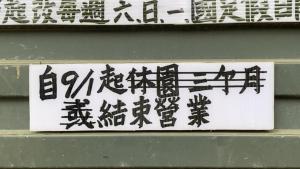 是改每週六日、一、國定假日
自9/1起休園三个月
或結束營業